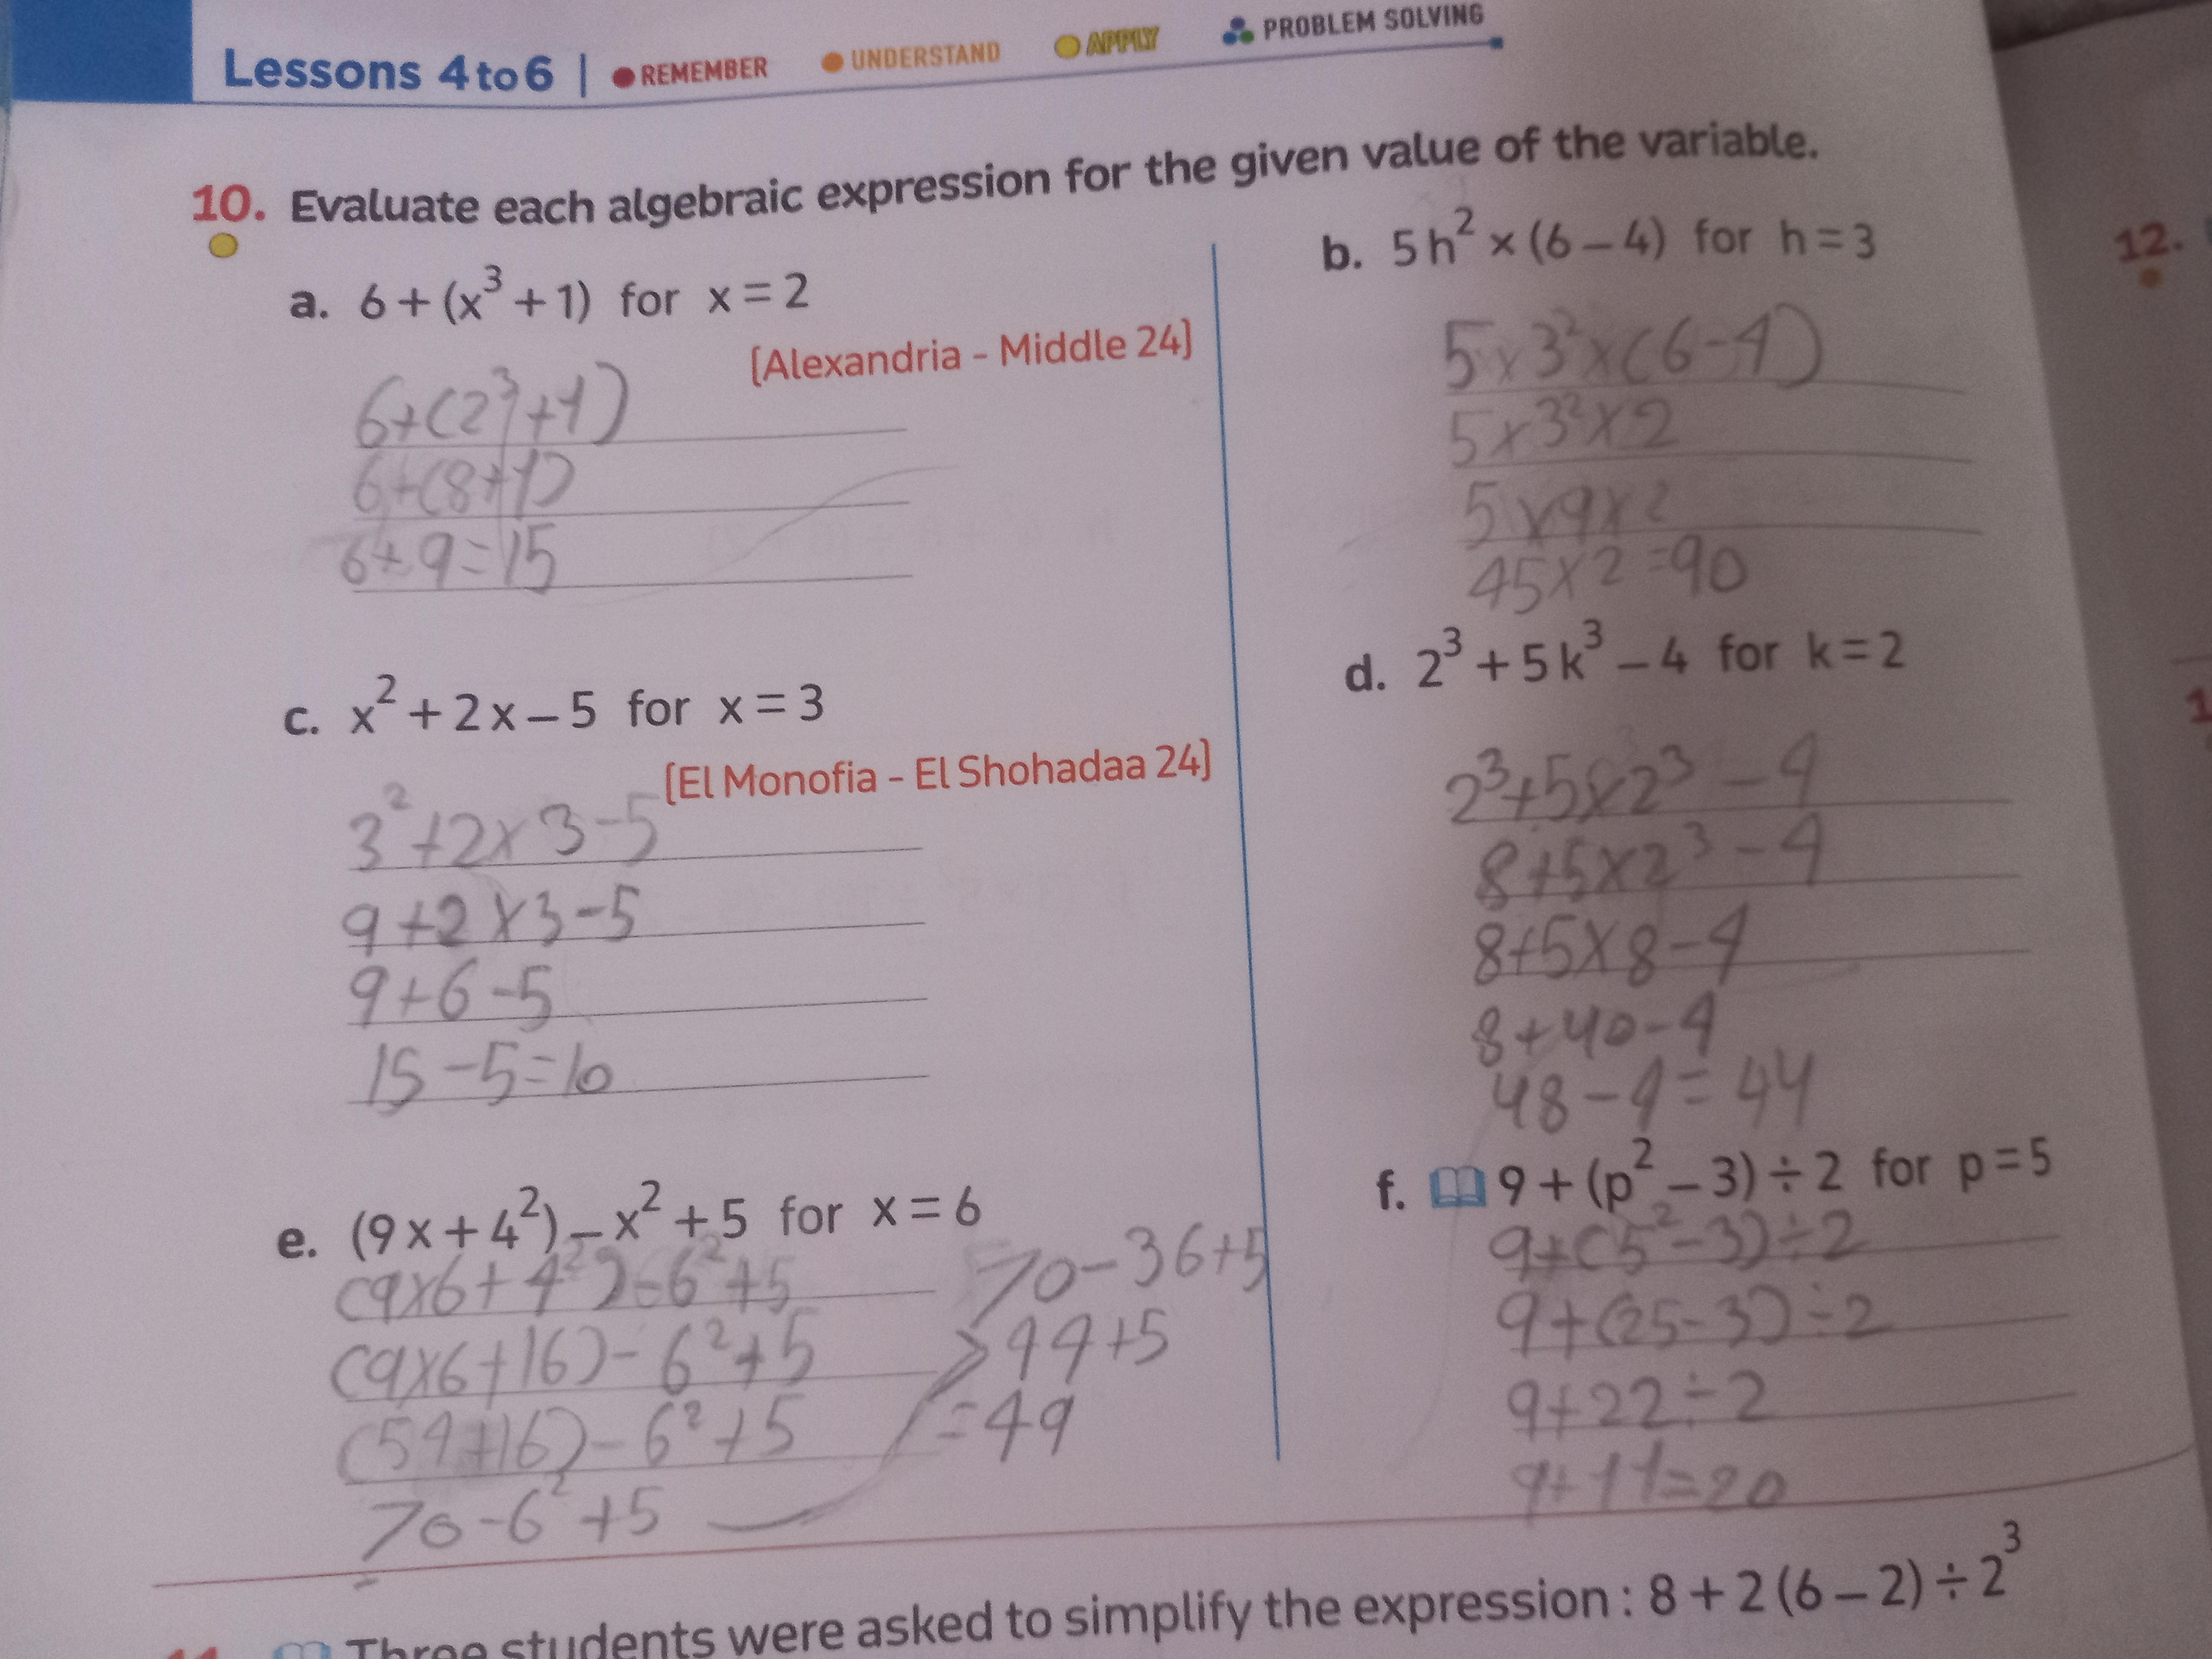 Lessons 4 to 6 | REMEMBER UNDERSTAND APPLY PROBLEM SOLVING
10. Evaluate each algebraic expression for the given value of the variable.
a. 6 + (x³ + 1) for x = 2
[Alexandria - Middle 24]
6+(2³+1)
6+(8+1)
6+9=15
b. 5h² × (6 – 4) for h = 3
5×3²×(6-4)
5×3²×2
5×9×2
45×2=90
c. x² + 2x – 5 for x = 3
[El Monofia - El Shohadaa 24]
3²+2×3-5
9+2×3-5
9+6-5
15-5=10
d. 2³ + 5k³ – 4 for k = 2
2³+5×2³-4
8+5×2³-4
8+5×8-4
8+40-4
48-4=44
e. (9x + 4²) – x² + 5 for x = 6
(9×6+4²)-6²+5
(9×6+16)-6²+5
(54+16)-6²+5
70-6²+5
70-36+5
44+5
=49
f. 9 + (p² – 3) ÷ 2 for p = 5
9+(5²-3)÷2
9+(25-3)÷2
9+22÷2
9+11=20
Three students were asked to simplify the expression : 8 + 2 (6 – 2) ÷ 2³
12.